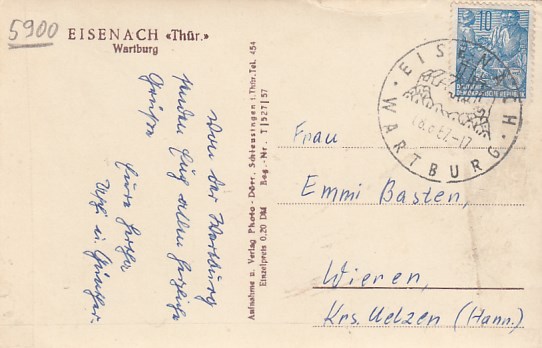 5900
EISENACH «Thür.»
Wartburg
Von der Wartburg
senden Euch allen herzliche
Grüße
Eure
u. Günther.
Aufnahme u. Verlag Photo-Dörr, Schleusingen i. Thür. Tel. 454
Einzelpreis 0,20 DM Reg.-Nr. T|527|57
10
DEUTSCHE
DEMOKRATISCHE REPUBLIK
EISENACH
WARTBURG
Frau
Emmi Basten,
Wieren,
Krs. Uelzen (Hann.)